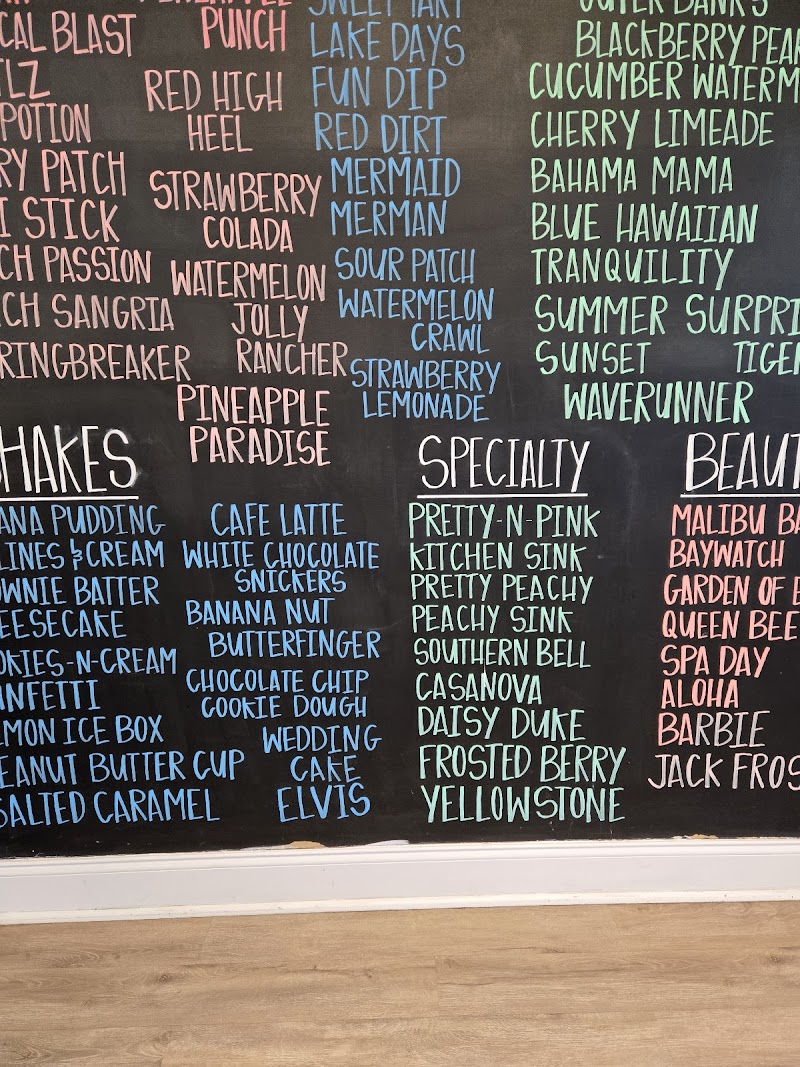 PUNCH
CAL BLAST
TLZ
POTION
RY PATCH
I STICK
CH PASSION
CH SANGRIA
RINGBREAKER
RED HIGH
HEEL
STRAWBERRY
COLADA
WATERMELON
JOLLY
RANCHER
PINEAPPLE
PARADISE
SWEET TART
LAKE DAYS
FUN DIP
RED DIRT
MERMAID
MERMAN
SOUR PATCH
WATERMELON
CRAWL
STRAWBERRY
LEMONADE
OUTER BANKS
BLACKBERRY PEAR
CUCUMBER WATERM
CHERRY LIMEADE
BAHAMA MAMA
BLUE HAWAIIAN
TRANQUILITY
SUMMER SURPRI
SUNSET TIGER
WAVERUNNER
HAKES
ANA PUDDING
LINES & CREAM
OWNIE BATTER
EESECAKE
OKIES-N-CREAM
NFETTI
MON ICE BOX
EANUT BUTTER CUP
SALTED CARAMEL
CAFE LATTE
WHITE CHOCOLATE
SNICKERS
BANANA NUT
BUTTERFINGER
CHOCOLATE CHIP
COOKIE DOUGH
WEDDING
CAKE
ELVIS
SPECIALTY
PRETTY-N-PINK
KITCHEN SINK
PRETTY PEACHY
PEACHY SINK
SOUTHERN BELL
CASANOVA
DAISY DUKE
FROSTED BERRY
YELLOWSTONE
BEAUT
MALIBU BA
BAYWATCH
GARDEN OF E
QUEEN BEE
SPA DAY
ALOHA
BARBIE
JACK FROS